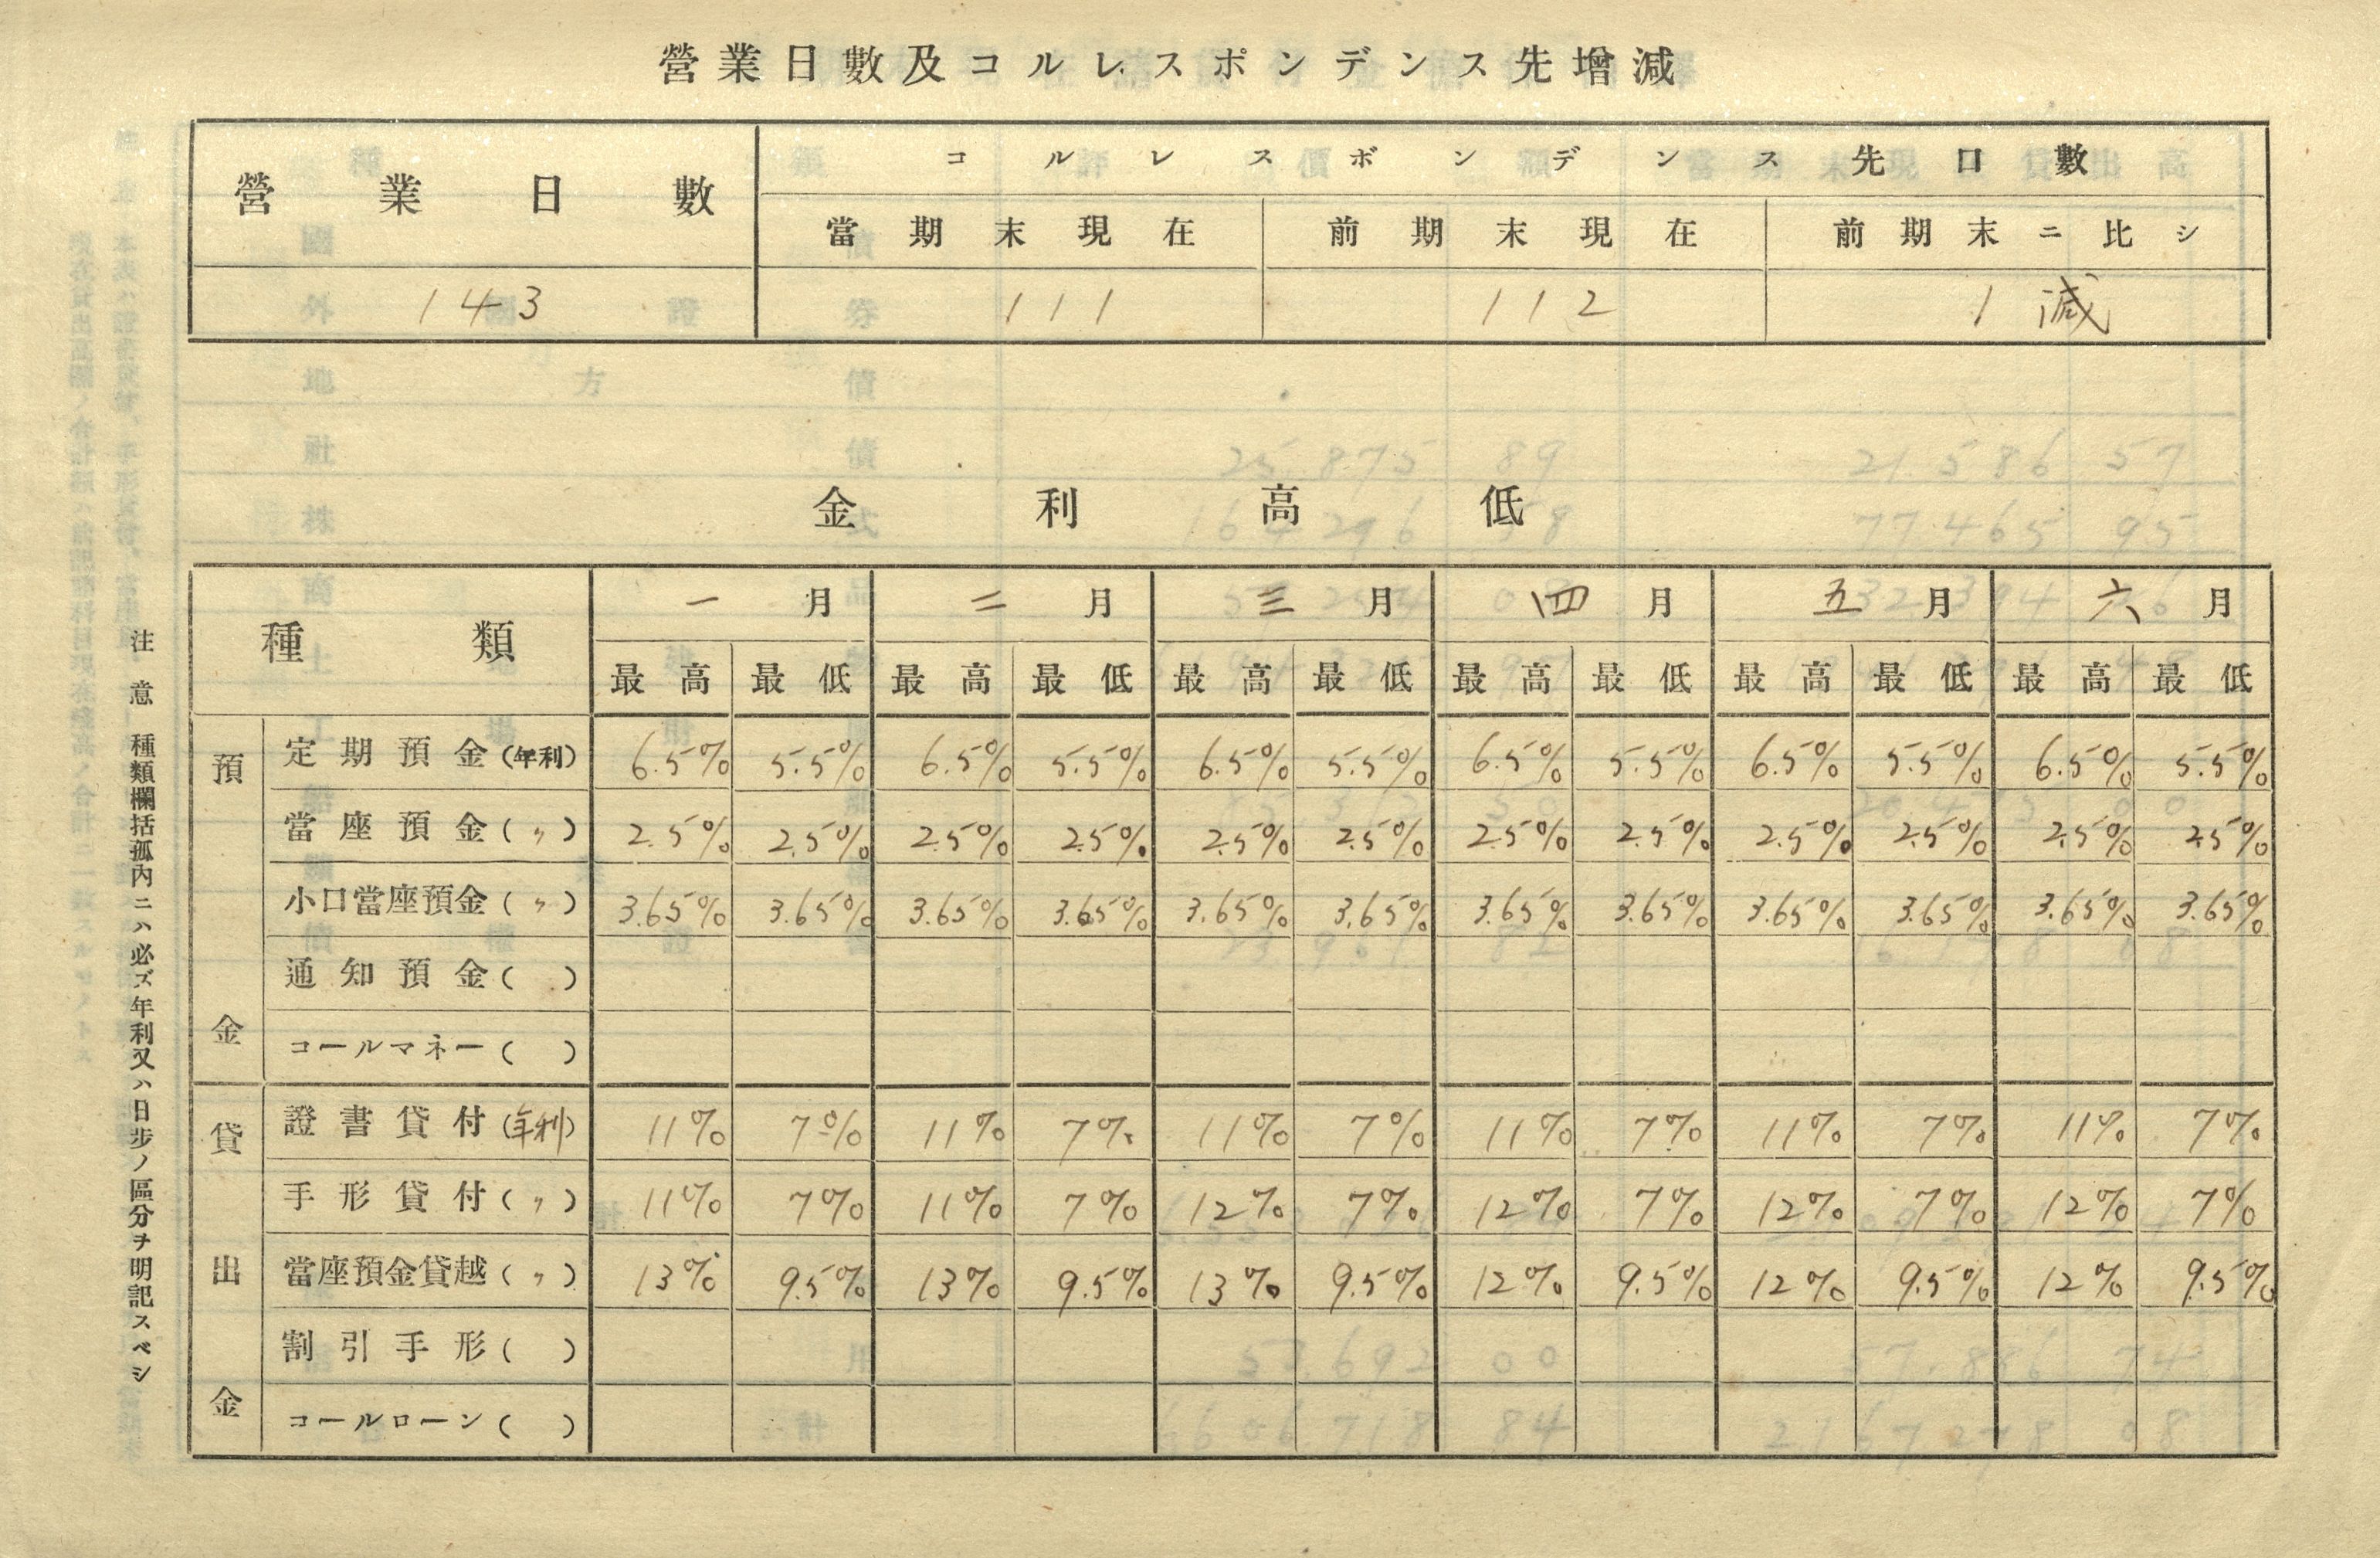 營業日數及コルレスポンデンス先增減
營業日數 コルレスポンデンス先口數
當期末現在 前期末現在 前期末ニ比シ
143 111 112 1 減
金利高低
種類 一月 二月 三月 四月 五月 六月
最高 最低 最高 最低 最高 最低 最高 最低 最高 最低 最高 最低
預金
定期預金(年利) 6.5% 5.5% 6.5% 5.5% 6.5% 5.5% 6.5% 5.5% 6.5% 5.5% 6.5% 5.5%
當座預金(〃) 2.5% 2.5% 2.5% 2.5% 2.5% 2.5% 2.5% 2.5% 2.5% 2.5% 2.5% 2.5%
小口當座預金(〃) 3.65% 3.65% 3.65% 3.65% 3.65% 3.65% 3.65% 3.65% 3.65% 3.65% 3.65% 3.65%
通知預金( )
コールマネー( )
貸出金
證書貸付(年利) 11% 7% 11% 7% 11% 7% 11% 7% 11% 7% 11% 7%
手形貸付(〃) 11% 7% 11% 7% 12% 7% 12% 7% 12% 7% 12% 7%
當座預金貸越(〃) 13% 9.5% 13% 9.5% 13% 9.5% 12% 9.5% 12% 9.5% 12% 9.5%
割引手形( )
コールローン( )
注意 種類欄括孤內ニハ必ズ年利又ハ日步ノ區分ヲ明記スベシ